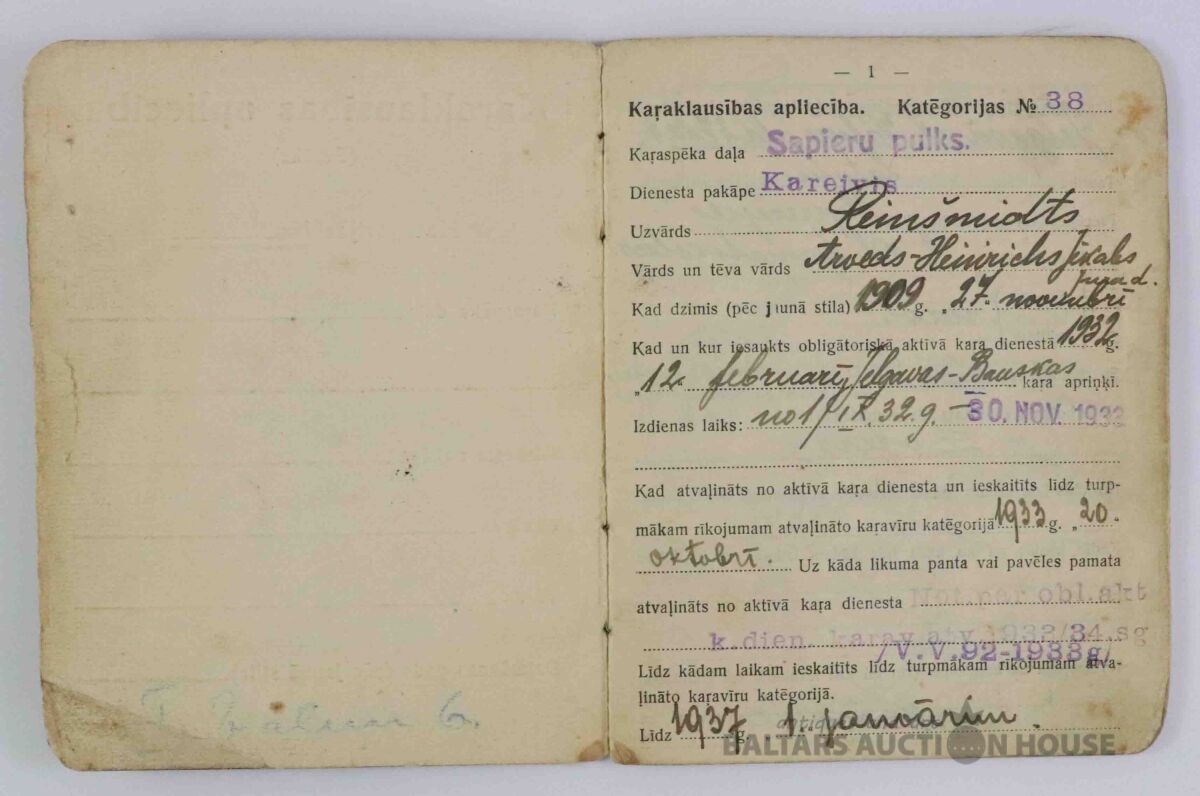 6.
— 1 —
Kaŗaklausības apliecība. Katēgorijas № 38
Kaŗaspēka daļa Sapieru pulks.
Dienesta pakāpe Kareivis
Uzvārds Reinšmidts
Vārds un tēva vārds Arveds-Heinrichs Jēkabs
Kad dzimis (pēc jaunā stila) 1909 g. „27“ novembrī
Kad un kur iesaukts obligātoriskā aktīvā kaŗa dienestā 1932 g.
„12. februarī Jelgavas-Bauskas kaŗa apriņķī.
Izdienas laiks: no 1/IX.32.g. – 30. NOV. 1932
Kad atvaļināts no aktīvā kaŗa dienesta un ieskaitīts līdz turp-
mākam rīkojumam atvaļināto kaŗavīru katēgorijā 1933 g. „20“
oktobrī. Uz kāda likuma panta vai pavēles pamata
atvaļināts no aktīvā kaŗa dienesta Not. par obl. akt
k. dien. karav. atv. 1932/34. sg
/V.V. 92-1933g/
Līdz kādam laikam ieskaitīts līdz turpmākam rīkojumam atva-
ļināto kaŗavīru katēgorijā.
Līdz 1937 g. „1. janvārim.
BALTARS AUCTION HOUSE